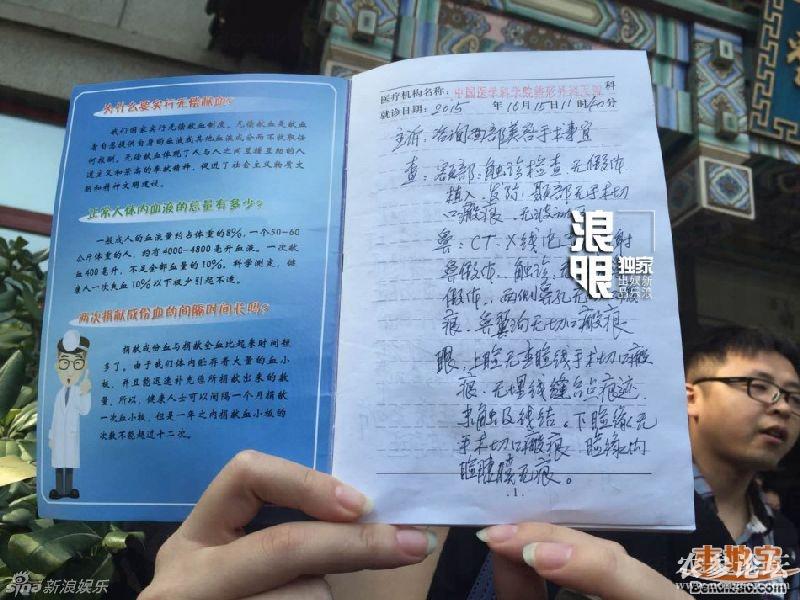 为什么要实行无偿献血?
我们国家实行无偿献血制度。无偿献血是献血
者自愿提供自身的血液或其他血液成分而不收取任
何报酬。无偿献血体现了人与人之间互接互助的人
道主义和崇高的奉献精神,促进了社会主义物质文
明和精神文明建设。
正常人体内血液的总量有多少?
一般成人的血液量约占体重的8%,一个50-60
公斤体重的人,约有4000-4800毫升血液。一次献
血400毫升,不足全部血量的10%。科学测定,健
康人一次失血10%以下极少引起不适。
两次捐献成份血的间隔时间长吗?
捐献成份血与捐献全血比起来时间短
多了。由于我们体内贮存着大量的血小
板,并且能迅速补充你所捐献出来的数
量。所以,健康人士可以间隔一个月捐献
一次血小板,但是一年之内捐献血小板的
次数不能超过十二次。
医疗机构名称:中国医学科学院整形外科医院 科
就诊日期:2015 年 10月15日11时40分
主诉:咨询面部美容手术事宜
查:颏部:触诊检查,无假体
植入,颏部无手术切
口瘢痕
鼻:CT、X线
鼻假体,触诊,无
假体,两侧鼻孔无
痕,鼻翼沟无切口瘢痕
眼:上睑无重睑线手术切口瘢
痕,无埋线缝合点痕迹,
未触及线结。下睑缘无
手术切口瘢痕,睑缘内
睑结膜无痕。
· 1 ·
浪眼
独家
出娱新
品乐浪
sina新浪娱乐
本地宝
农参论坛
Bendibao.com